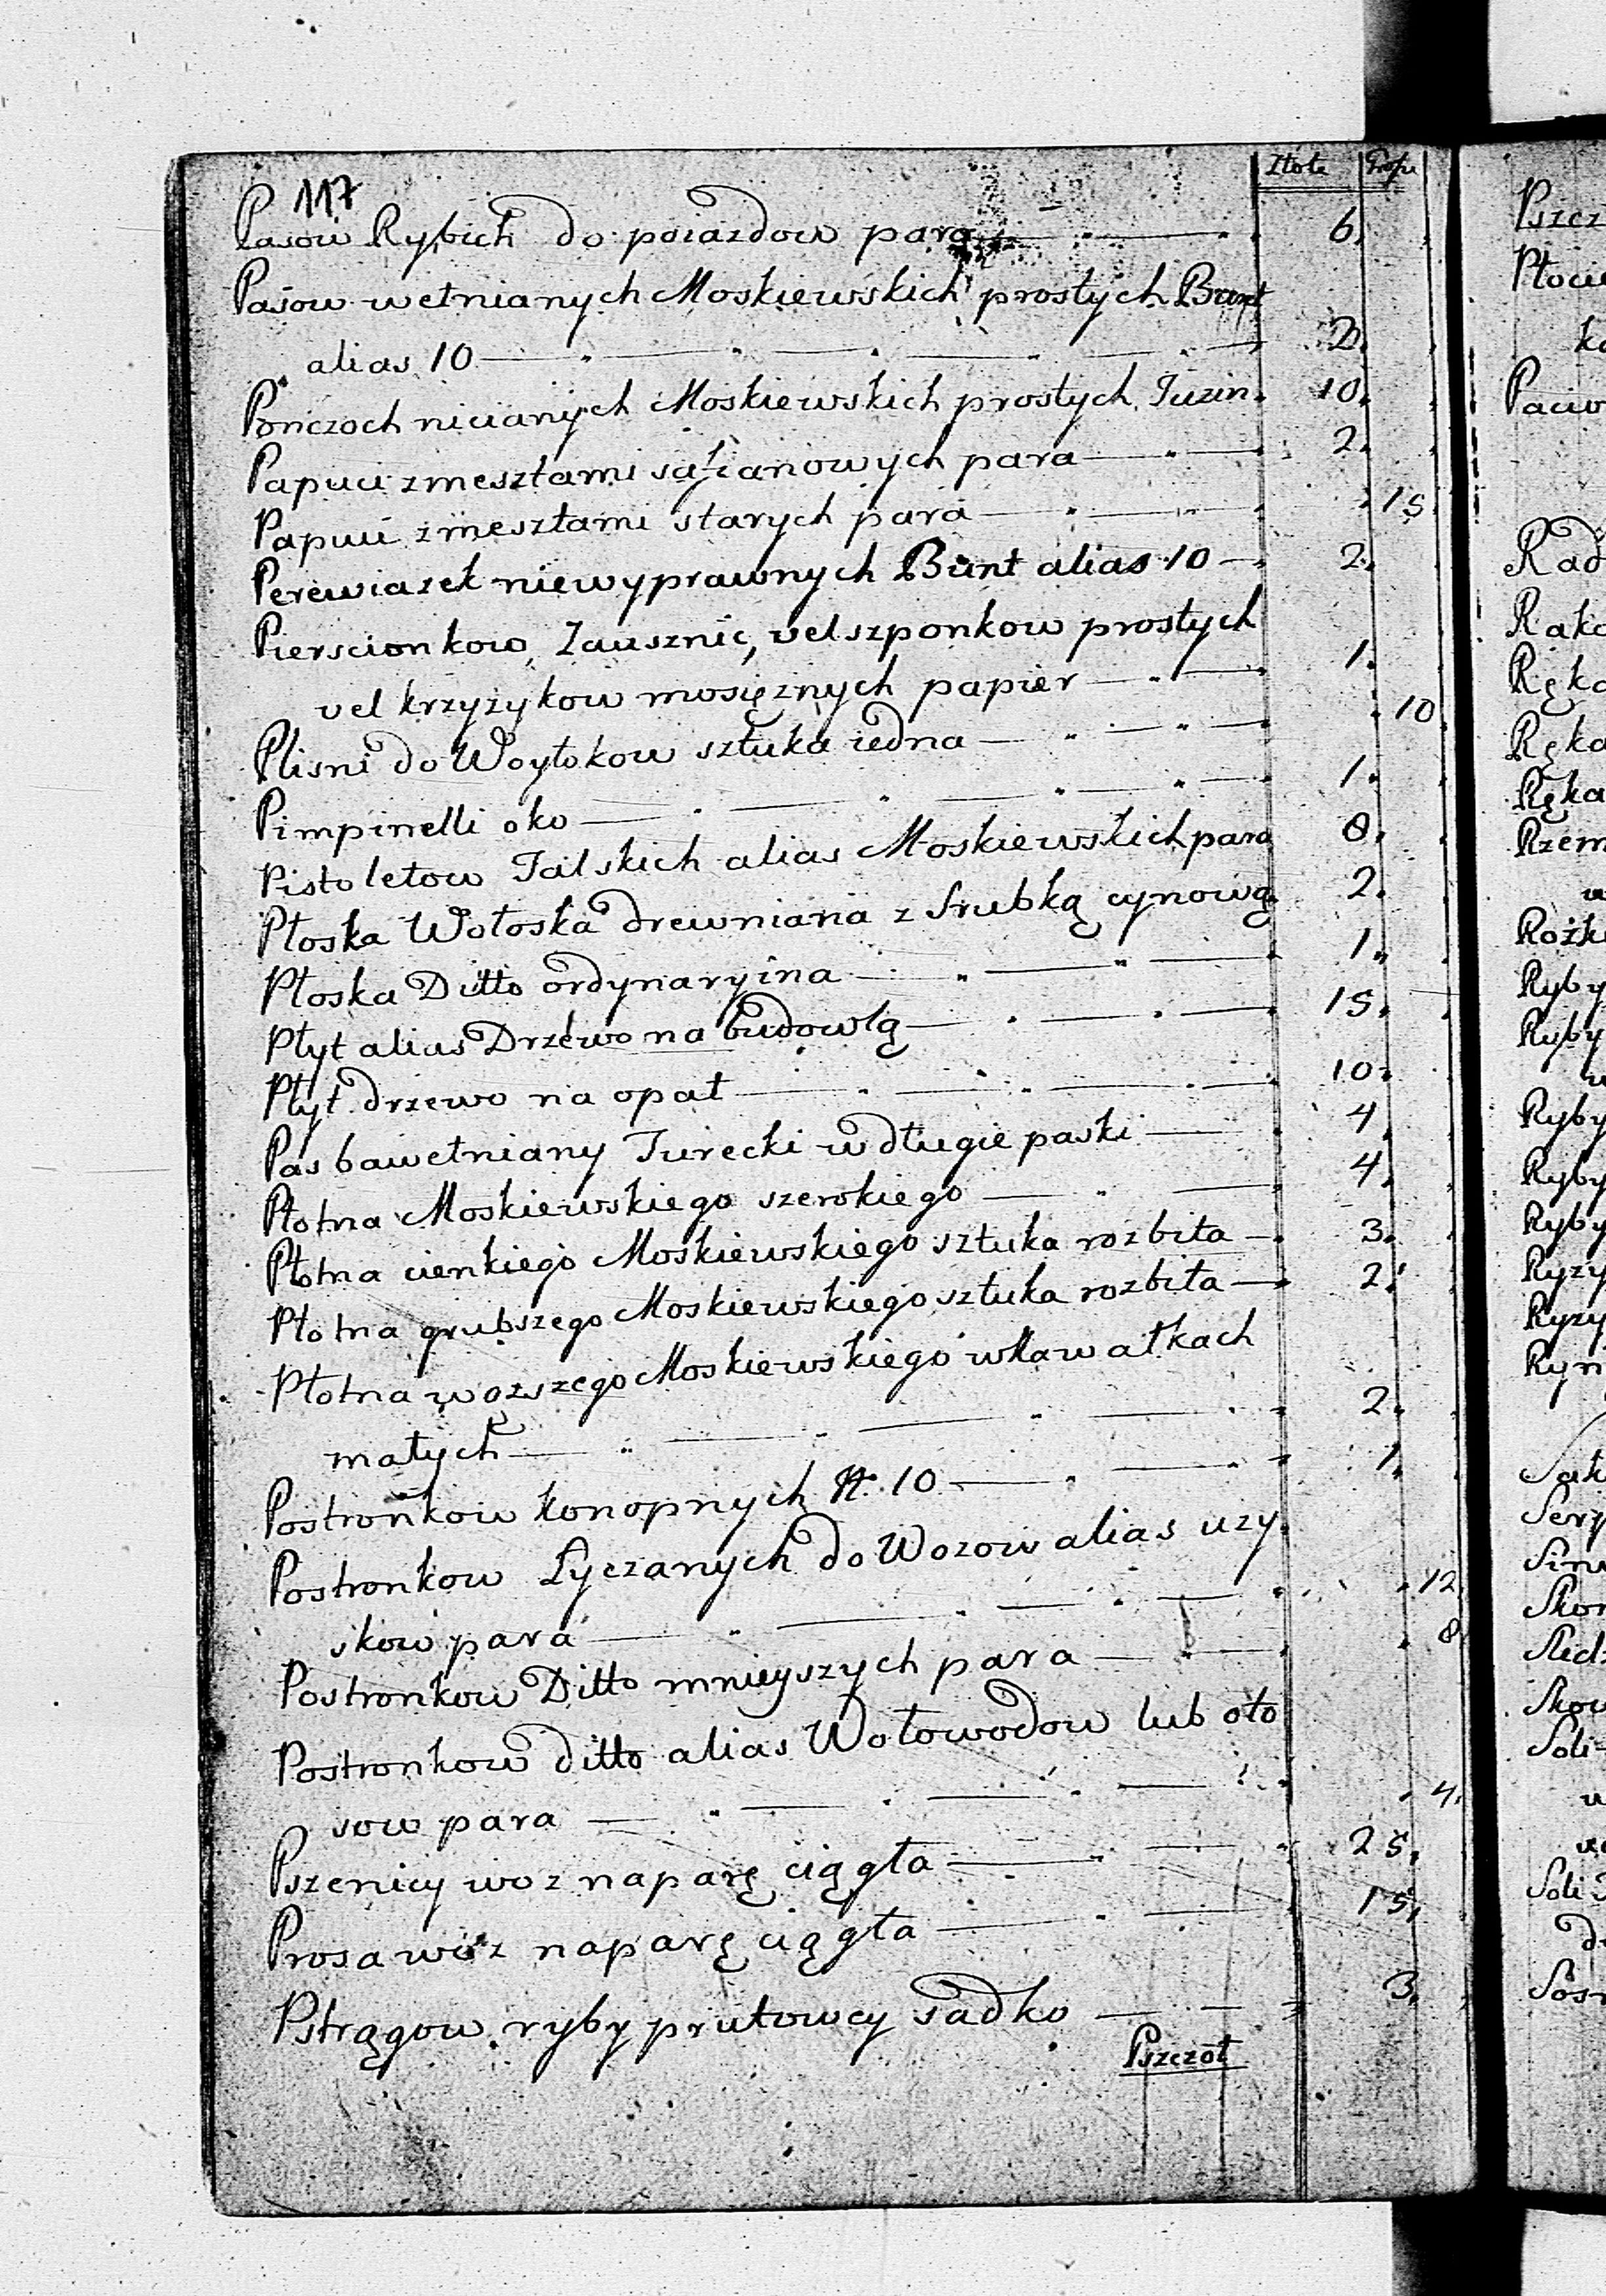 117
Złote Grosze
Pasow Rybich do poiazdow para 6.
Pasow wełnianych Moskiewskich prostych Bunt
alias 10 2.
Ponczoch nicianych Moskiewskich prostych Tuzin 10.
Papuci z mesztami safianowych para 2.
Papuci z mesztami starych para 15
Perewiazek niewyprawnych Bunt alias 10 2.
Pierscionkow, Zausznic, vel szponkow prostych
vel krzyzykow mosięznych papier 1.
Plisni do Woyłokow sztuka iedna 10
Pimpinelli oko 1.
Pistoletow Tulskich alias Moskiewskich para 8.
Płoska Wołoska drewniana z Srubką cynową 2.
Płoska Ditto ordynaryina 1.
Płyt alias Drzewo na budowlą 15.
Płyt drzewo na opał 10.
Pas bawełniany Turecki w długie paski 4.
Płotna Moskiewskiego szerokiego 4.
Płotna cienkiego Moskiewskiego sztuka rozbita 3.
Płotna grubszego Moskiewskiego sztuka rozbita 2.
Płotna wozszego Moskiewskiego w kawałkach
małych 2.
Postronkow konopnych N. 10 1.
Postronkow Łyczanych do Wozow alias uzy
skow para 12.
Postronkow Ditto mnieyszych para 8
Postronkow ditto alias Wołowodow lub oło
sow para 4.
Pszenicy woz na parę ciągła 25.
Prosa woz na parę ciągła 15.
Pstrągow ryby prutowey sadko 3.
Pszczoł
Pszcz
Płocie
Rad
Ryby
Ryby
Ryby
Ryby
Ryby
Soli
Soli